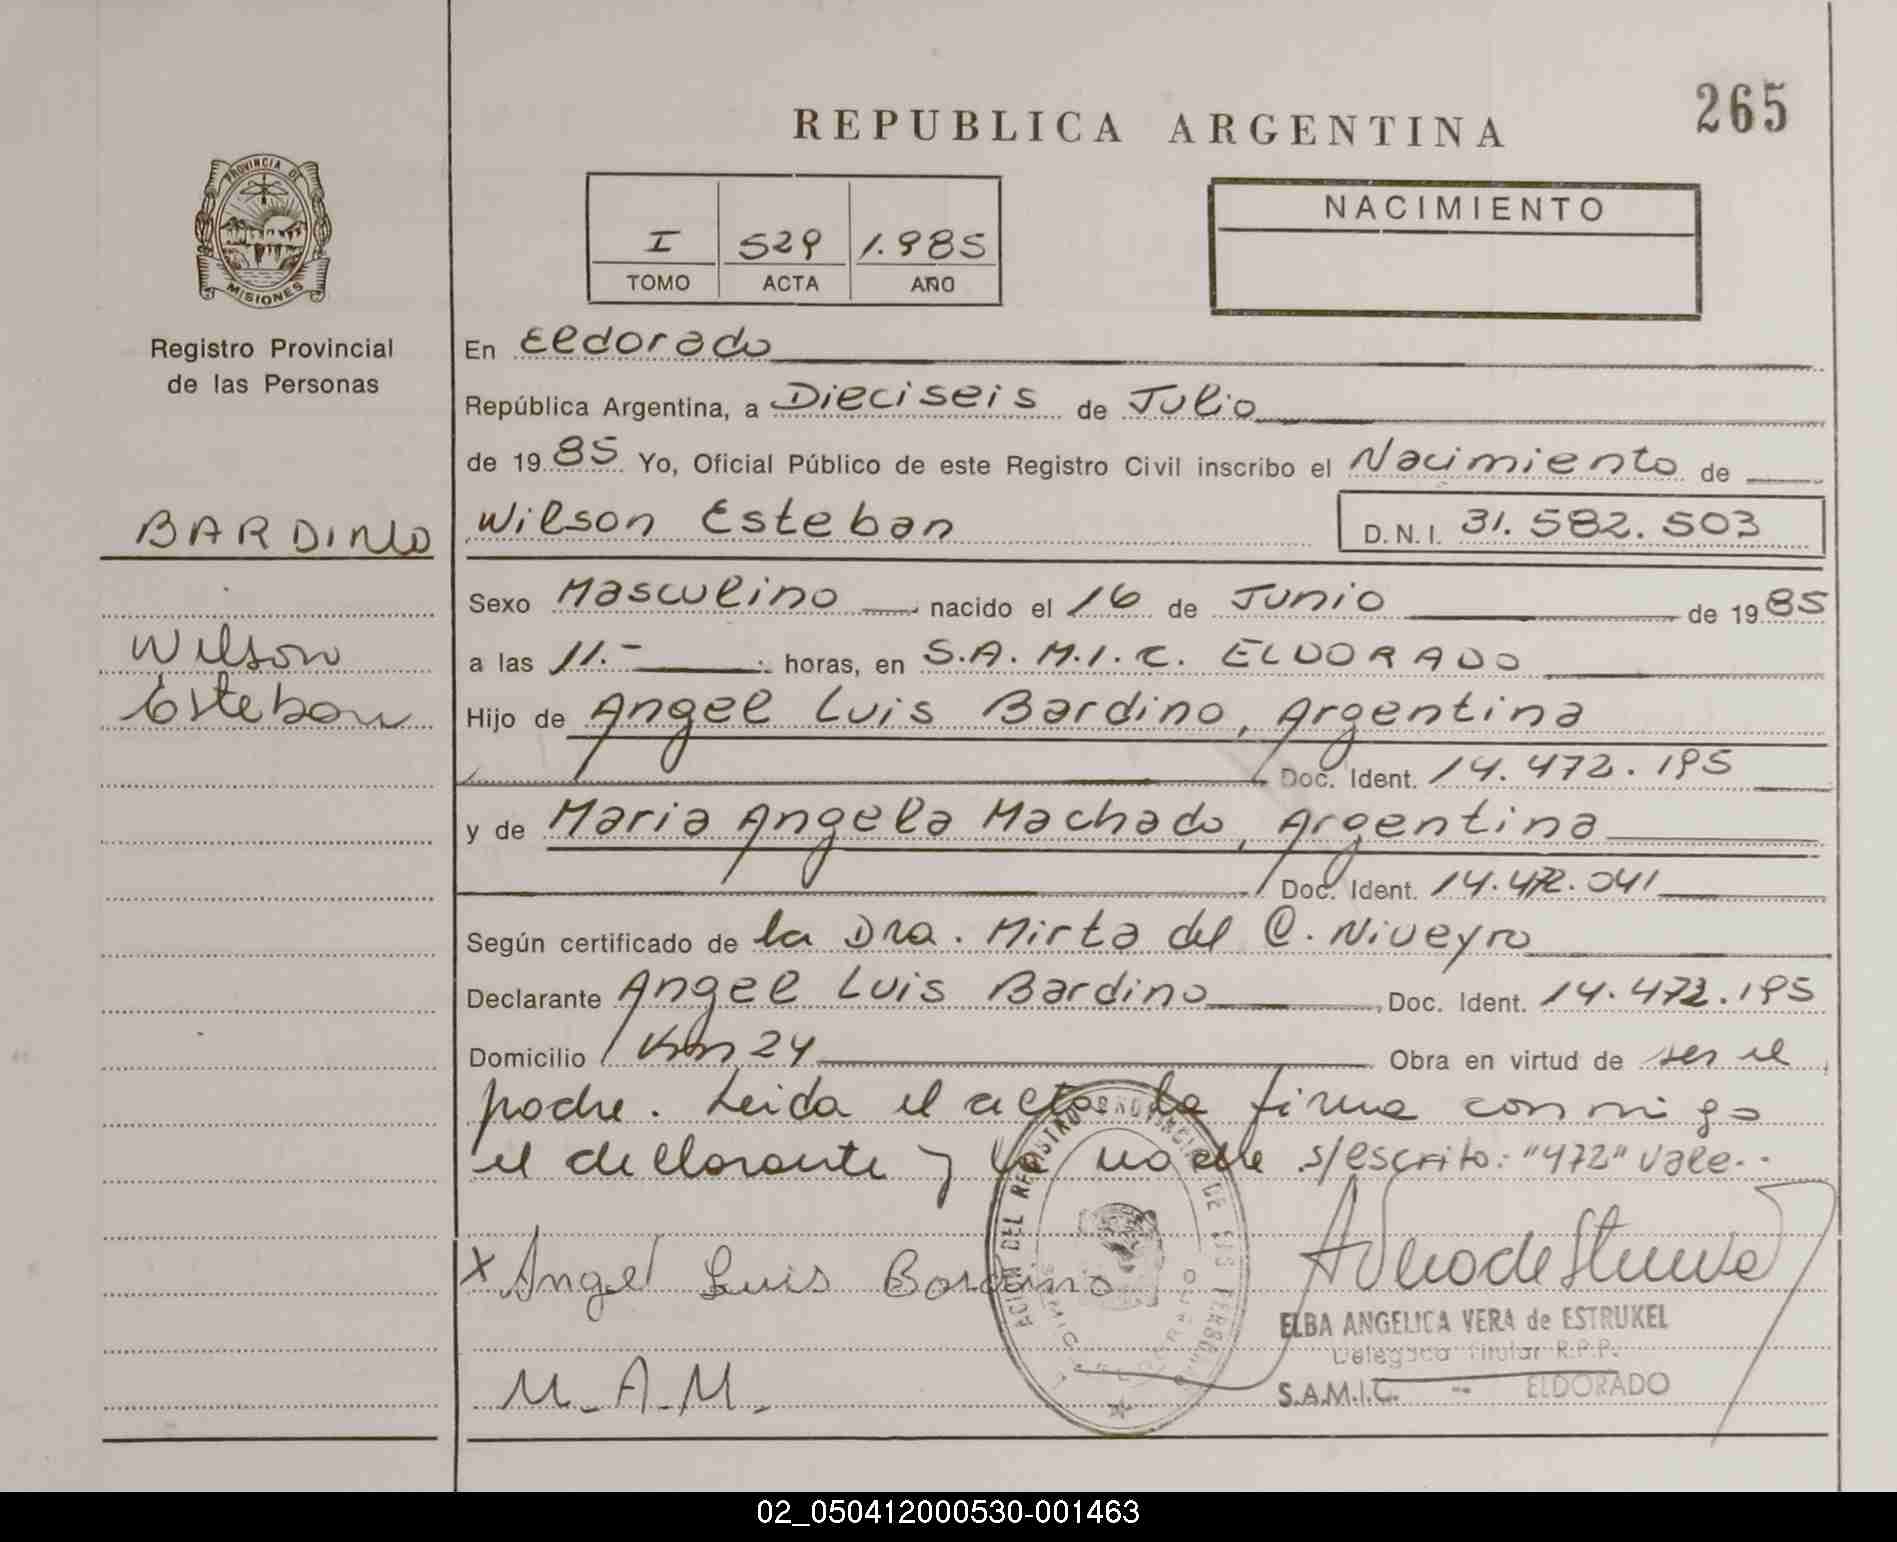 265
REPUBLICA ARGENTINA
PROVINCIA DE
MISIONES
Registro Provincial
de las Personas
I 529 1.985
TOMO ACTA AÑO
NACIMIENTO
En Eldorado
República Argentina, a Dieciseis de Julio
de 1985 Yo, Oficial Público de este Registro Civil inscribo el Nacimiento de
BARDINO
Wilson Esteban D.N.I. 31.582.503
Sexo Masculino nacido el 16 de Junio de 1985
Wilson
a las 11.- horas, en S.A.M.I.C. ELDORADO
Esteban
Hijo de Angel Luis Bardino, Argentina
Doc. Ident. 14.472.195
y de Maria Angela Machado, Argentina
Doc. Ident. 14.472.041
Según certificado de la Dra. Mirta del C. Niveyro
Declarante Angel Luis Bardino, Doc. Ident. 14.472.195
Domicilio Km 24 Obra en virtud de ser el
padre. Leida el acta la firma conmigo
el declarante y la madre s/escrito: "472" vale.-
X Angel Luis Bardino
ELBA ANGELICA VERA de ESTRUKEL
Delegada Titular R.P.P.
S.A.M.I.C. -- ELDORADO
M.A.M.
02_050412000530-001463